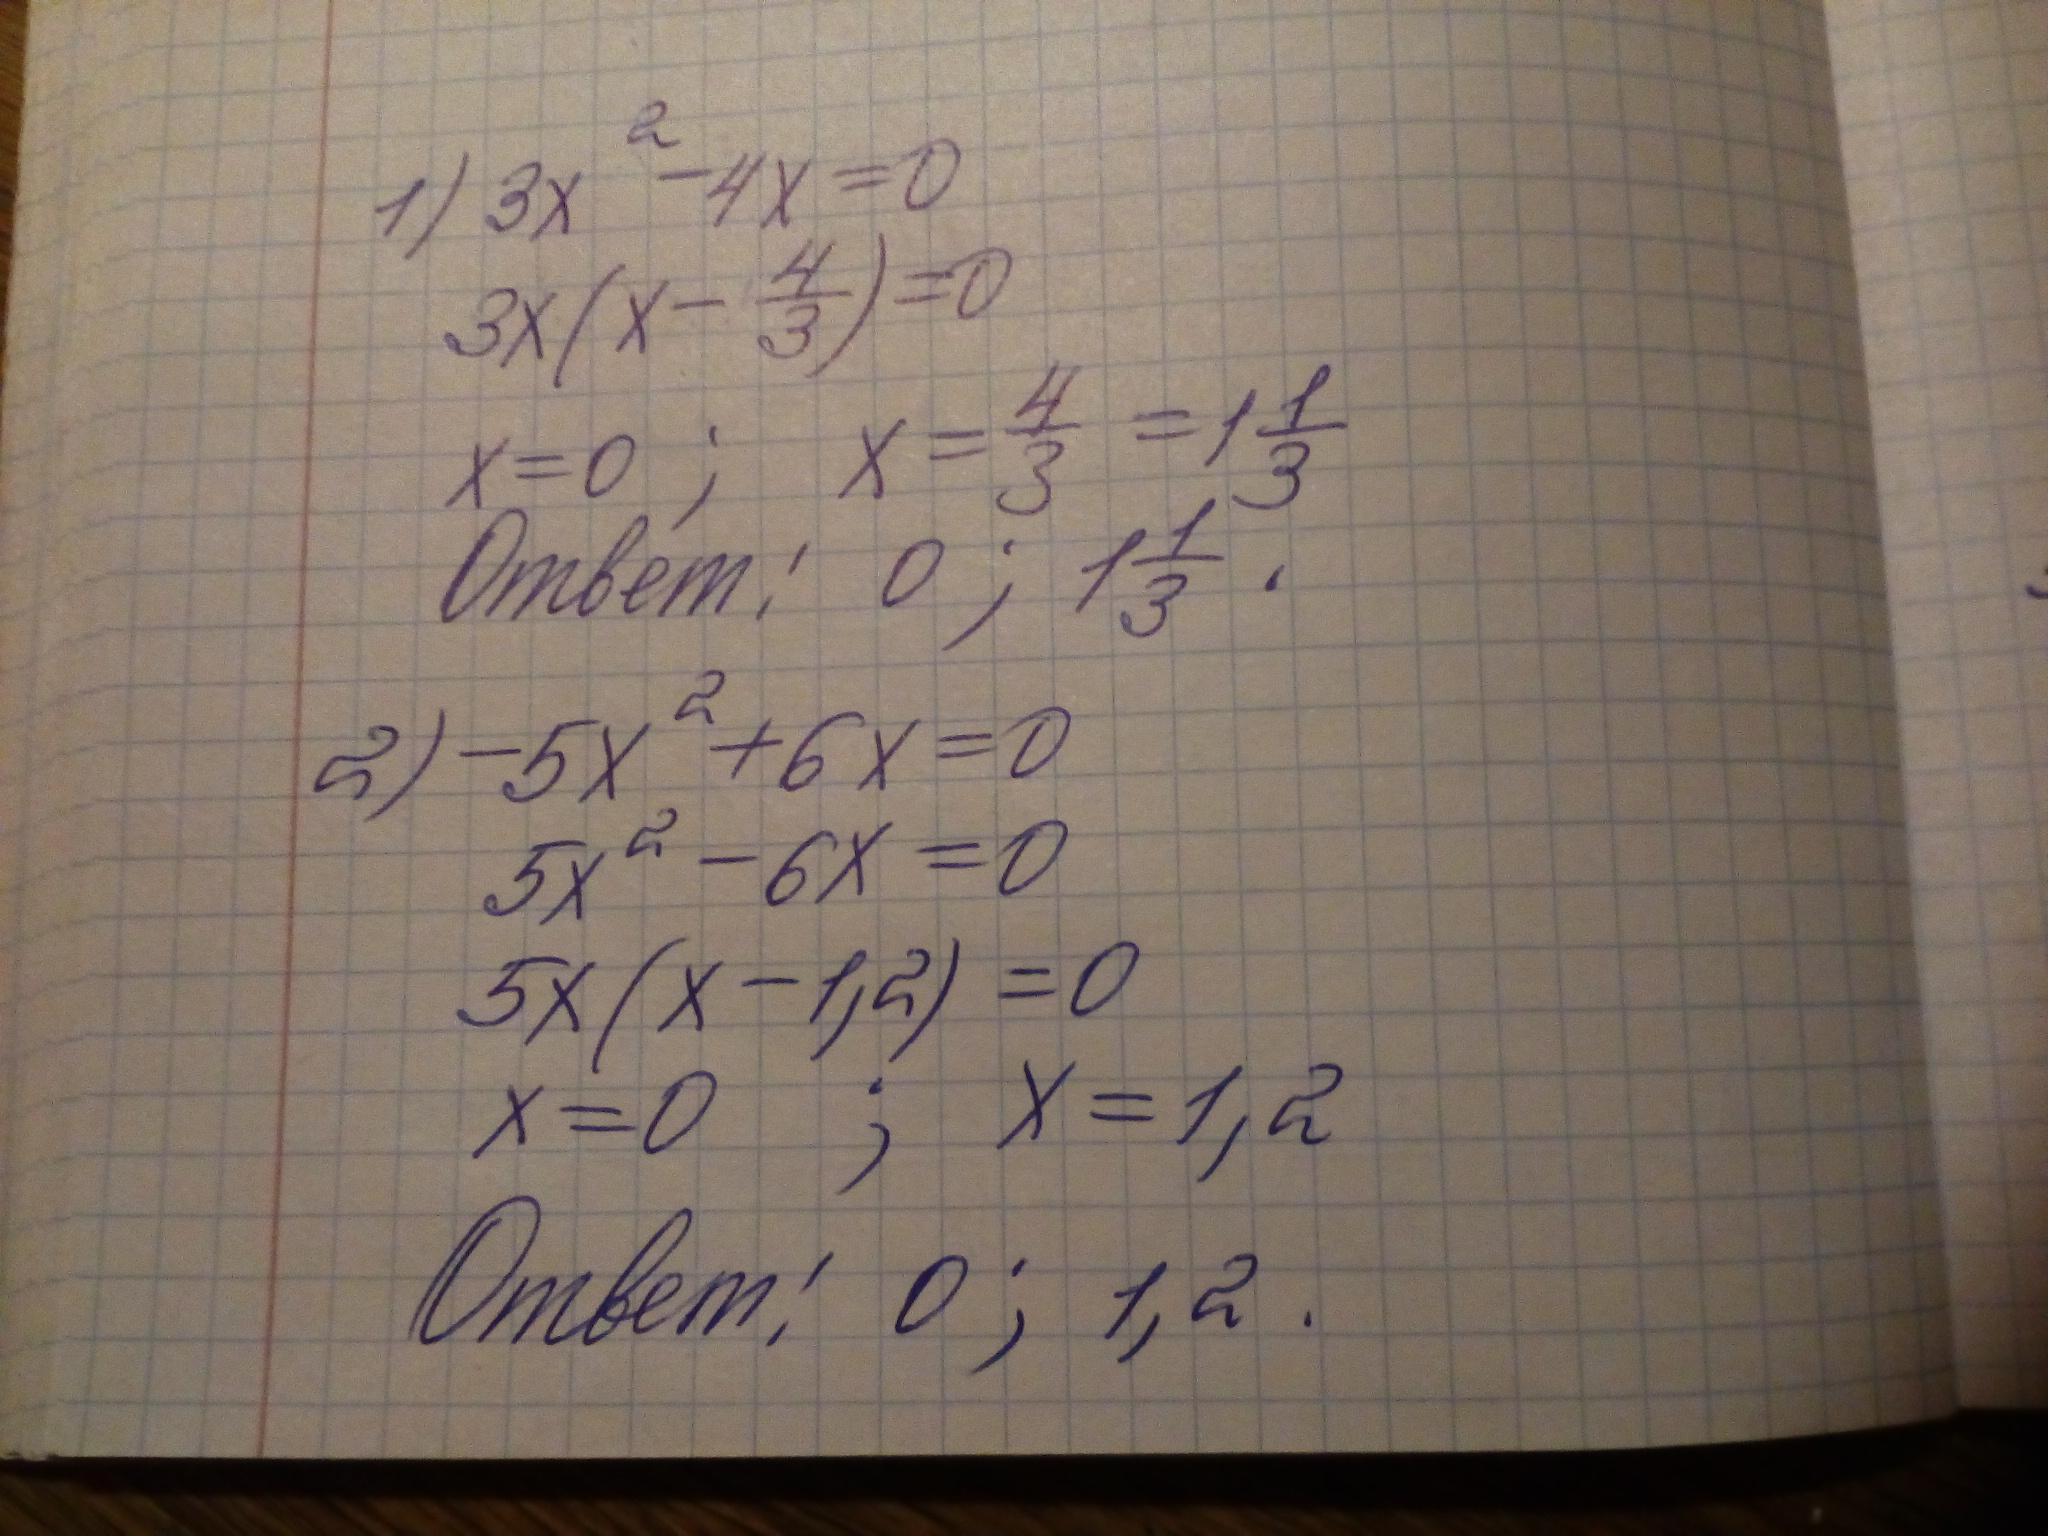 1) 3x² - 4x = 0
3x(x - 4/3) = 0
x = 0 ; x = 4/3 = 1 1/3
Ответ: 0 ; 1 1/3 .
2) -5x² + 6x = 0
5x² - 6x = 0
5x(x - 1,2) = 0
x = 0 ; x = 1,2
Ответ: 0 ; 1,2 .